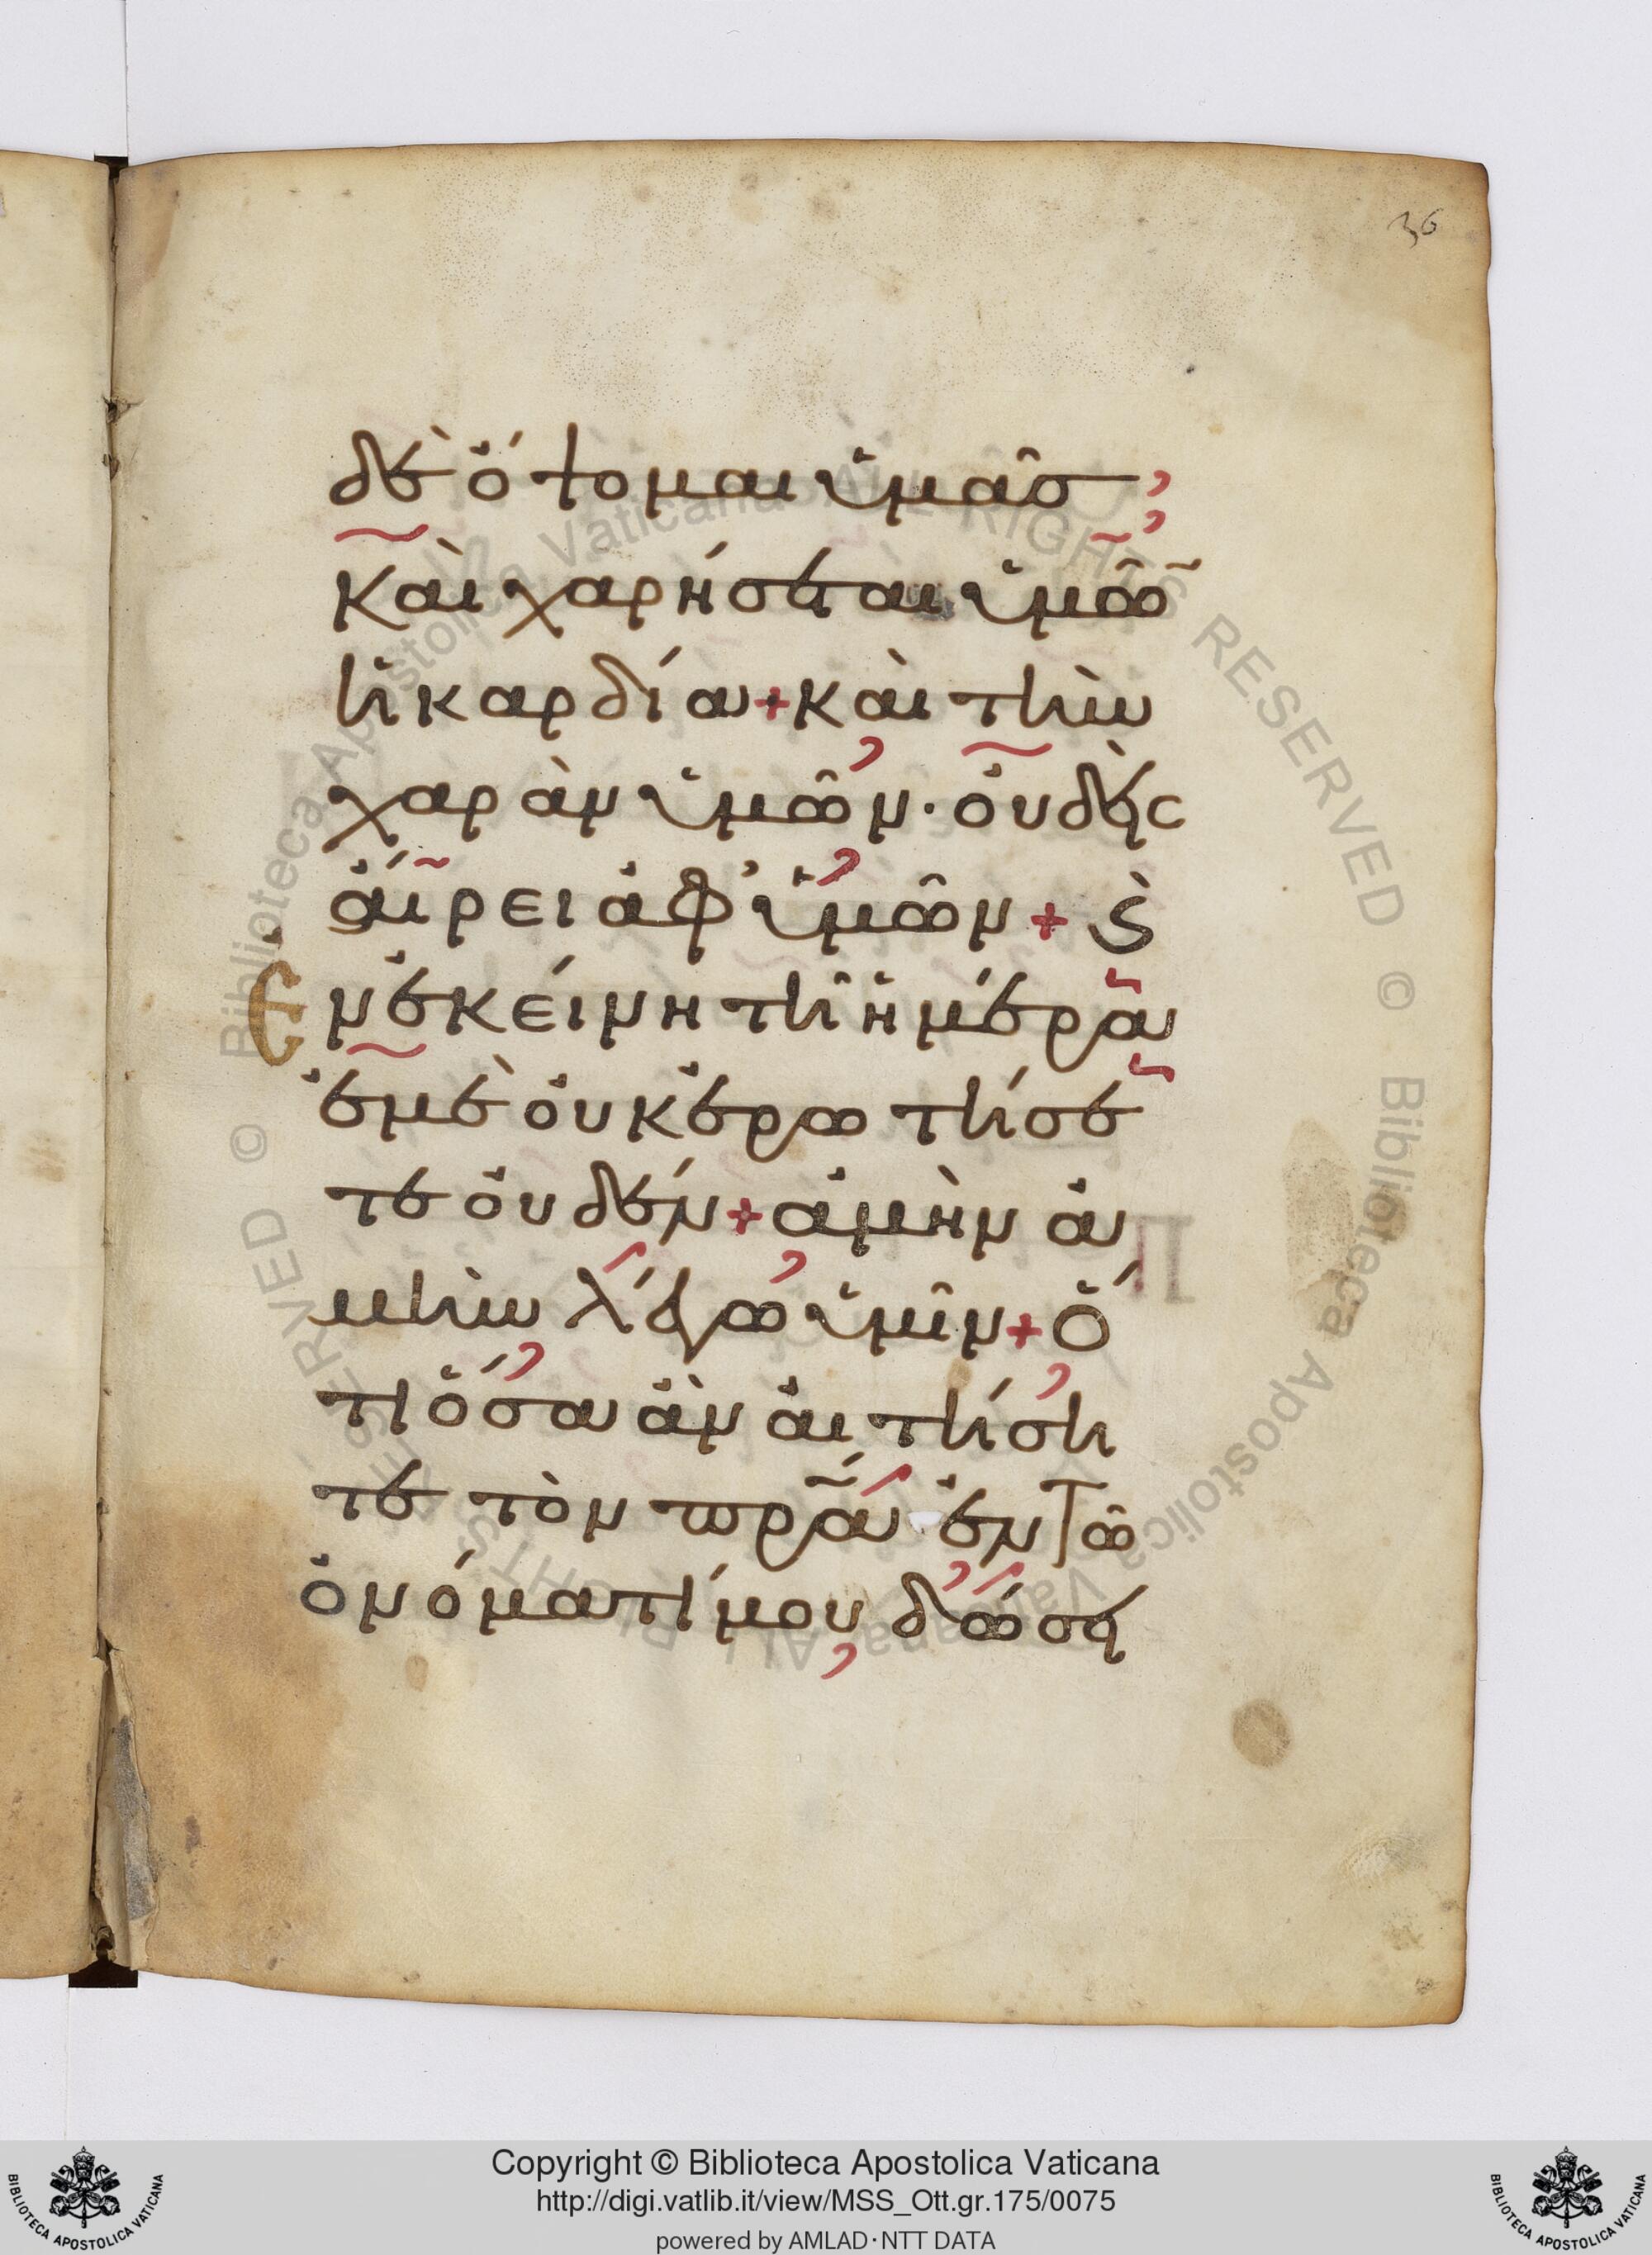 36
δὲ ὄψομαι ὑμᾶσ
καὶ χαρήσεται ὑμῶ̃
ἡ καρδία + καὶ τὴν
χαρὰν ὑμῶν · οὐδεὶς
αἴρει ἀφ' ὑμῶν + ϛ̀
Ἐν ἐκείνη τῆ ἡμέρα
ἐμὲ οὐκ ἐρωτήσε
τε οὐδέν + ἀμὴν ἀ
μὴν λέγω ὑμῖν + ὅ
τι ὅσα ἀν αἰτήση
τε τὸν πρ̃α ἐν τῶ
ὀνόματί μου δώσει
Copyright © Biblioteca Apostolica Vaticana
http://digi.vatlib.it/view/MSS_Ott.gr.175/0075
powered by AMLAD·NTT DATA
BIBLIOTECA APOSTOLICA VATICANA
BIBLIOTECA APOSTOLICA VATICANA
© Biblioteca Apostolica Vaticana ALL RIGHTS RESERVED
© Biblioteca Apostolica Vaticana ALL RIGHTS RESERVED